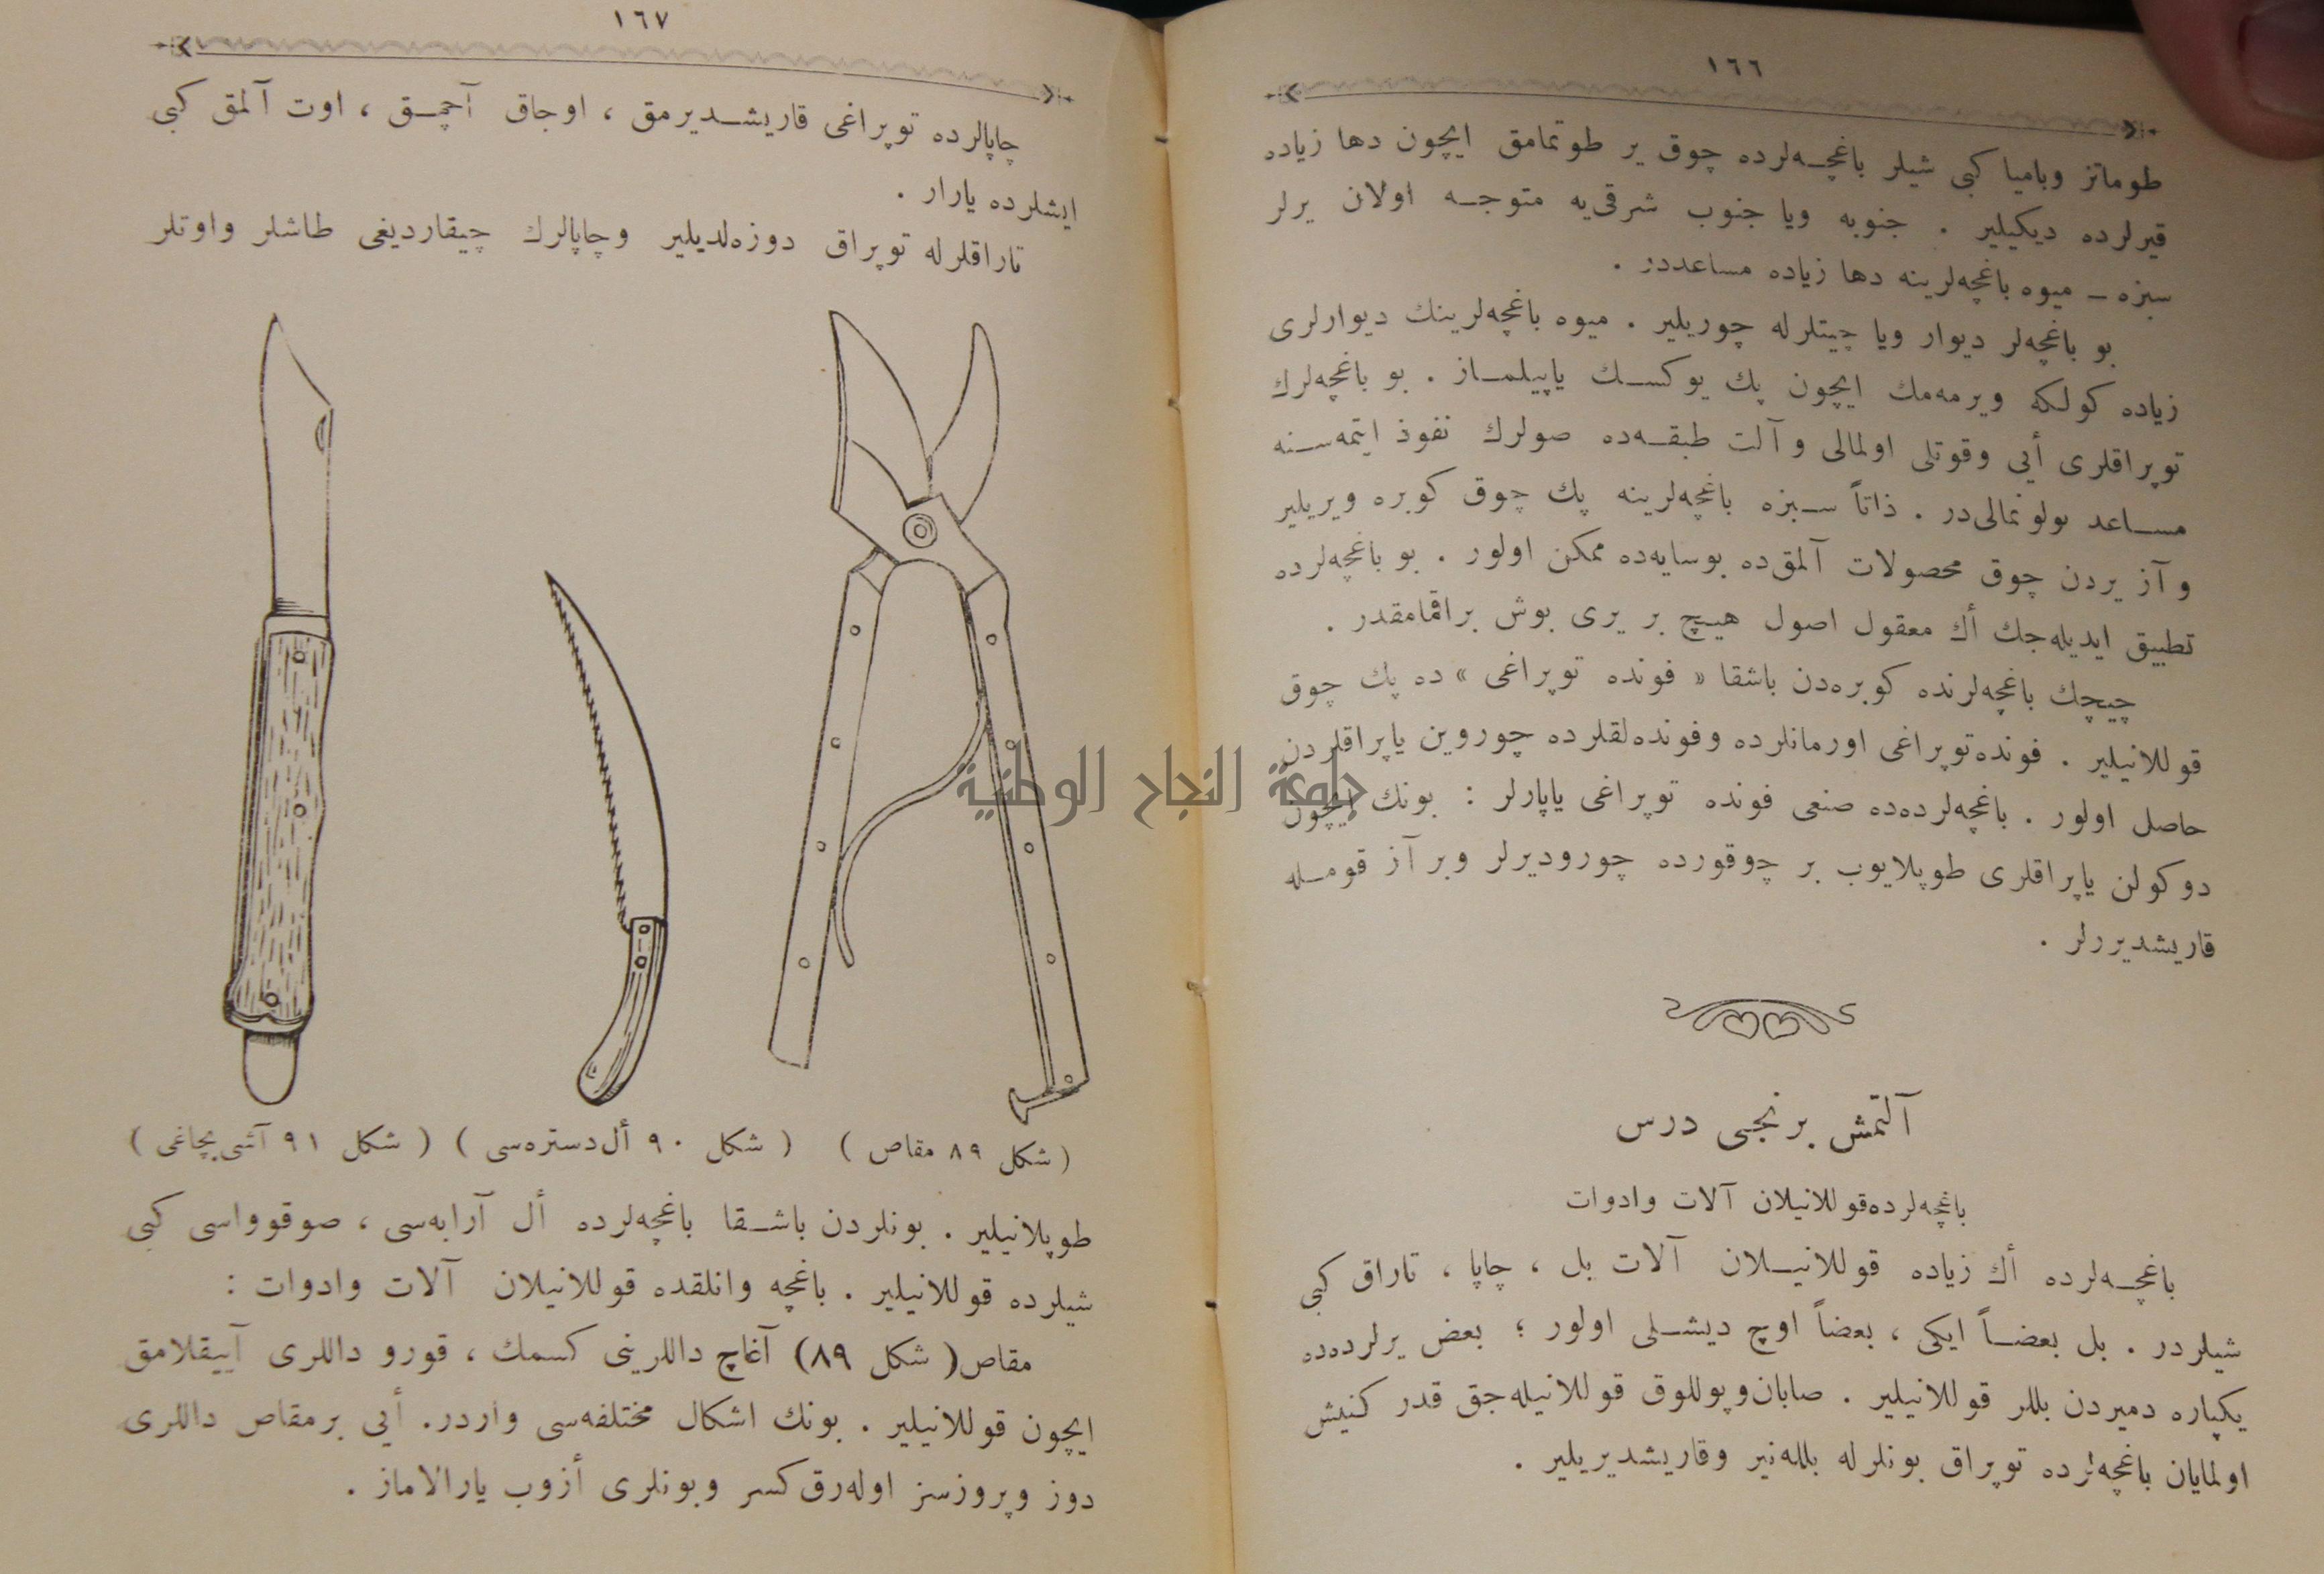 ١٦٦
طوماتز وباميا كبى شيلر باغچه‌لرده چوق ير طوتمامق ايچون دها زياده
قيرلرده ديكيلير . جنوبه ويا جنوب شرقى‌يه متوجه اولان يرلر
سبزه – ميوه باغچه‌لرينه دها زياده مساعددر .
بو باغچه‌لر ديوار ويا چيتلرله چوريلير . ميوه باغچه‌لرينك ديوارلرى
زياده كولكه ويرمه‌مك ايچون پك يوكسك ياپيلماز . بو باغچه‌لرك
توپراقلرى أيى وقوتلى اولمالى و آلت طبقه‌ده صولرك نفوذ ايتمه‌سنه
مساعد بولونمالى‌در . ذاتاً سبزه باغچه‌لرينه پك چوق كوبره ويريلير
و آز يردن چوق محصولات آلمق‌ده بوسايه‌ده ممكن اولور . بو باغچه‌لرده
تطبيق ايديله‌جك أك معقول اصول هيچ بر يرى بوش براقمامقدر .
چيچك باغچه‌لرنده كوبره‌دن باشقا « فونده توپراغى » ده پك چوق
قوللانيلير . فونده‌توپراغى اورمانلرده وفونده‌لقلرده چوروين ياپراقلردن
حاصل اولور . باغچه‌لرده‌ده صنعى فونده توپراغى ياپارلر : بونك ايچون
دوكولن ياپراقلرى طوپلايوب بر چوقورده چوروديرلر وبر آز قومله
قاريشديررلر .
آلتمش برنجى درس
باغچه‌لرده‌قوللانيلان آلات وادوات
باغچه‌لرده أك زياده قوللانيلان آلات بل ، چاپا ، تاراق كبى
شيلردر . بل بعضاً ايكى ، بعضاً اوچ ديشلى اولور ؛ بعض يرلرده‌ده
يكپاره دميردن بللر قوللانيلير . صابان‌وپوللوق قوللانيله‌جق قدر كنيش
اولمايان باغچه‌لرده توپراق بونلرله بلله‌نير وقاريشديريلير .
١٦٧
چاپالرده توپراغى قاريشديرمق ، اوجاق آچمق ، اوت آلمق كبى
ايشلرده يارار .
تاراقلرله توپراق دوزه‌لديلير وچاپالرك چيقارديغى طاشلر واوتلر
( شكل ٨٩ مقاص ) ( شكل ٩٠ أل‌دستره‌سى ) ( شكل ٩١ آشى‌بچاغى )
طوپلانيلير . بونلردن باشقا باغچه‌لرده أل آرابه‌سى ، صوقوواسى كبى
شيلرده قوللانيلير . باغچه وانلقده قوللانيلان آلات وادوات :
مقاص( شكل ٨٩) آغاچ داللرينى كسمك ، قورو داللرى آييقلامق
ايچون قوللانيلير . بونك اشكال مختلفه‌سى واردر. أيى برمقاص داللرى
دوز وپروزسز اوله‌رق كسر وبونلرى أزوب يارالاماز .
جامعة النجاح الوطنية